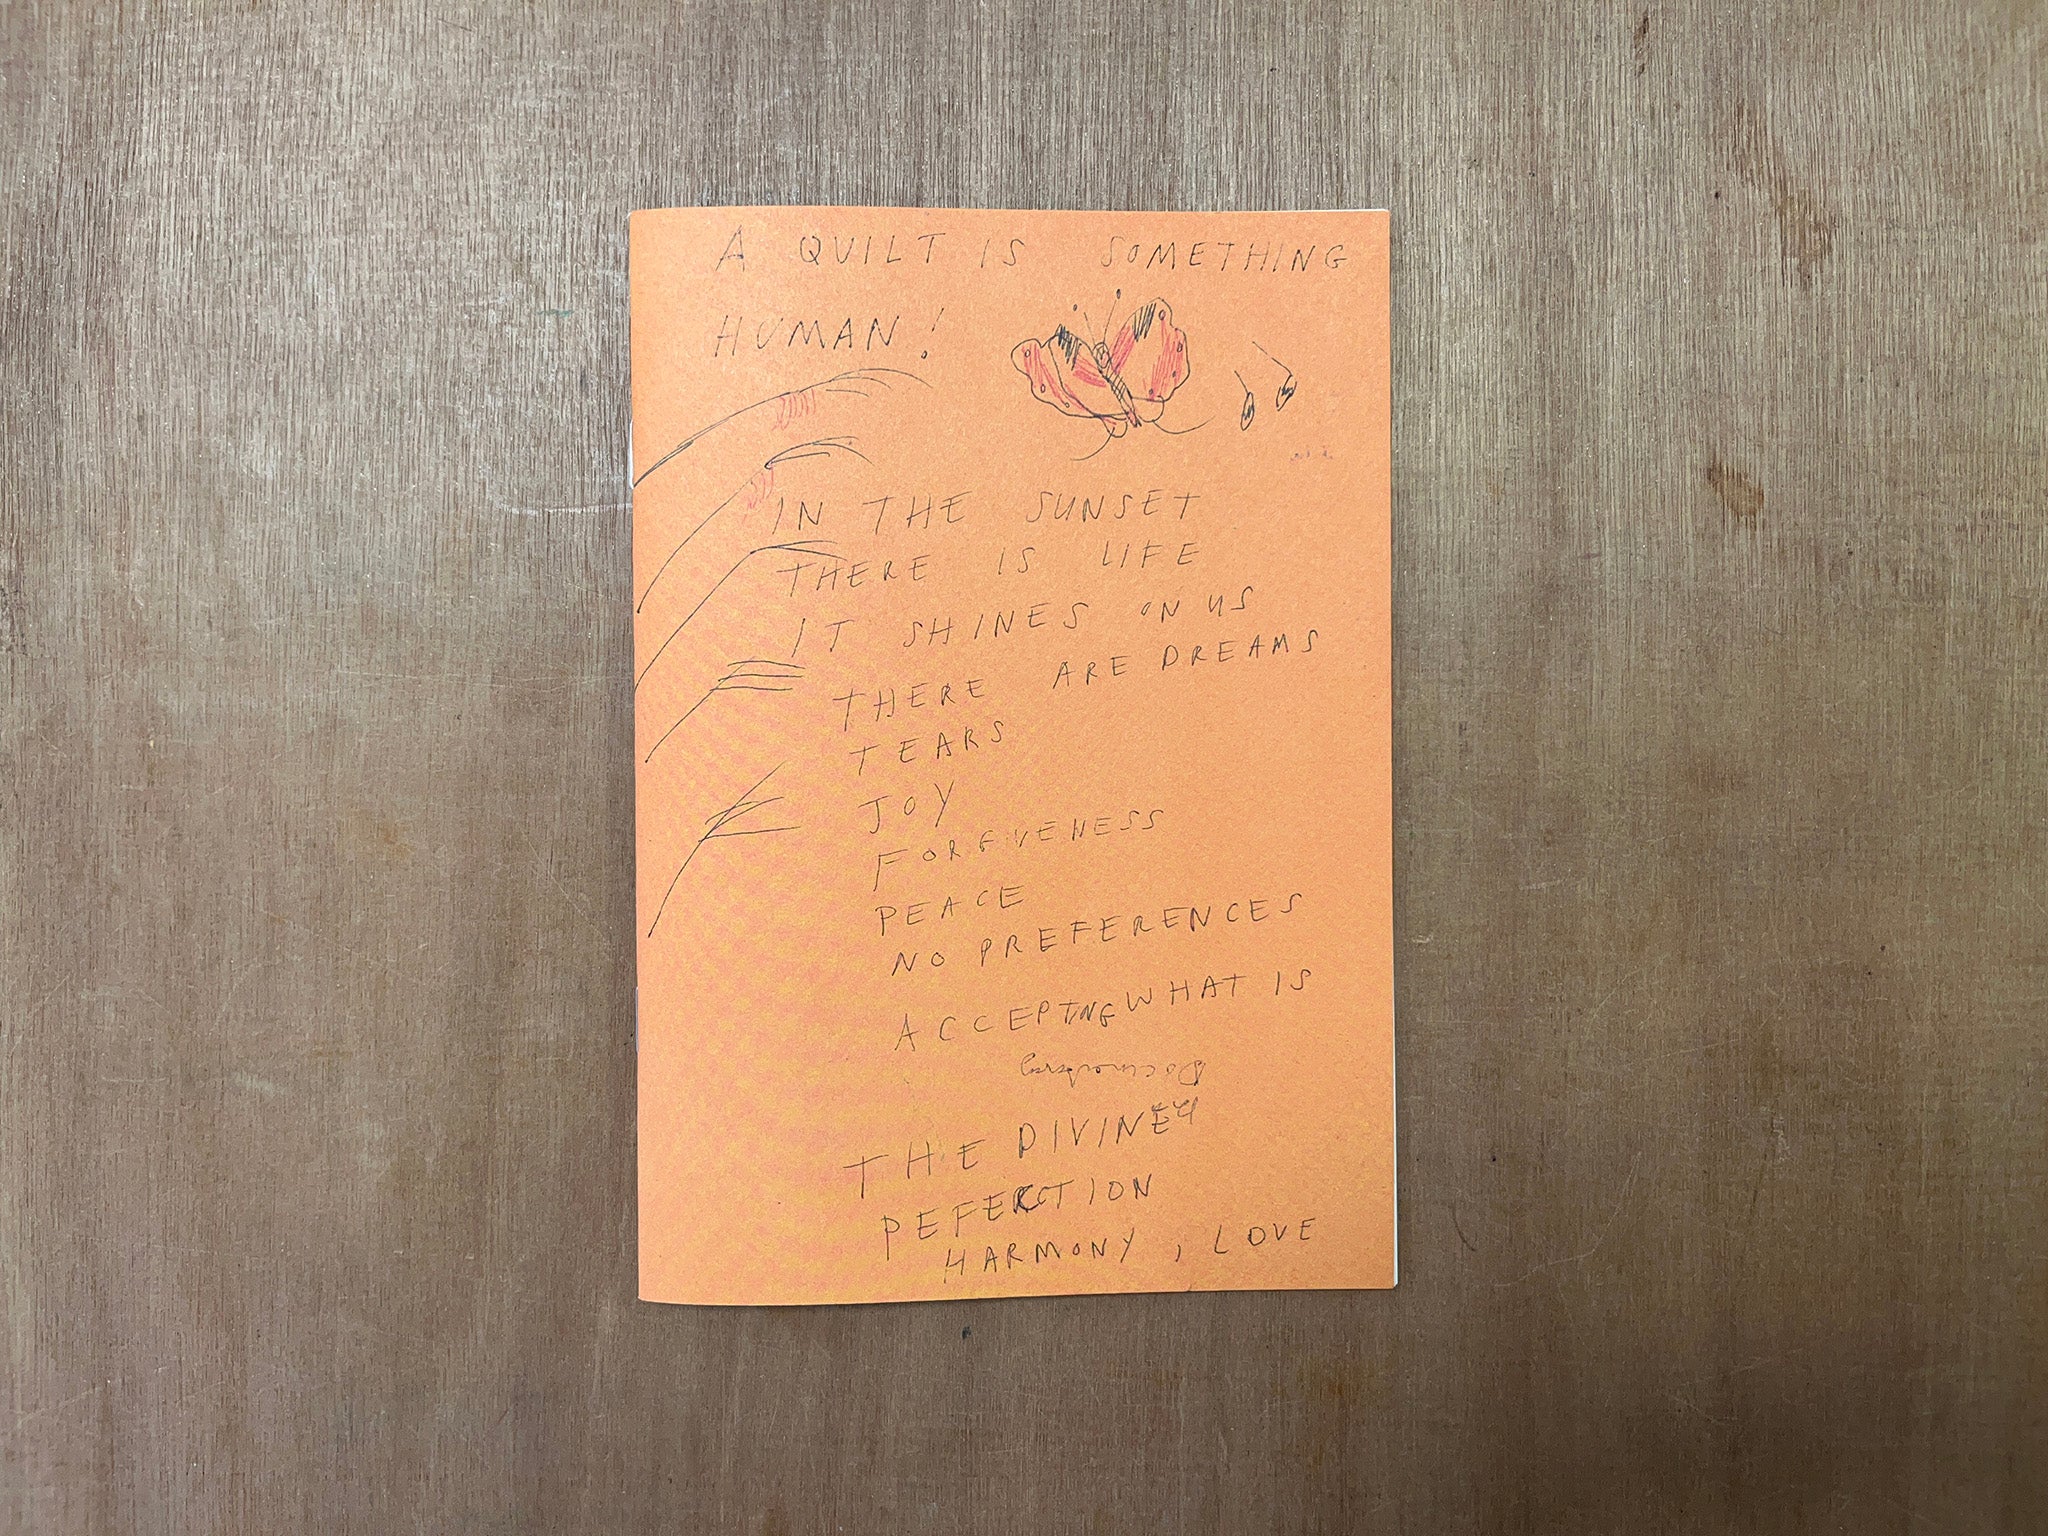 A QUILT IS SOMETHING
HUMAN!
IN THE SUNSET
THERE IS LIFE
IT SHINES ON US
THERE ARE DREAMS
TEARS
JOY
FORGIVENESS
PEACE
NO PREFERENCES
ACCEPTING WHAT IS
Documentary
THE DIVINELY
PEFERCTION
HARMONY, LOVE